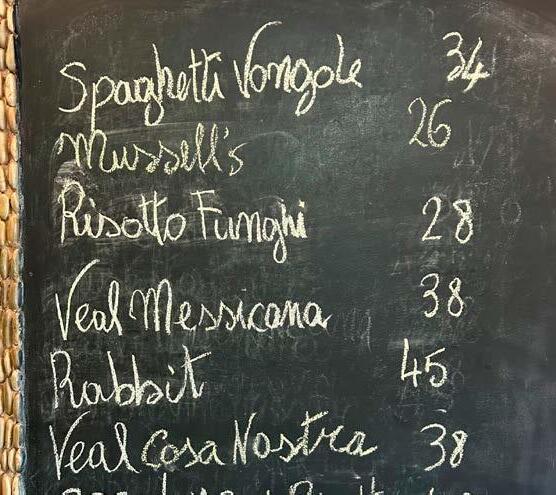 Spaghetti Vongole 34
Mussell's 26
Risotto Funghi 28
Veal Messicana 38
Rabbit 45
Veal Cosa Nostra 38